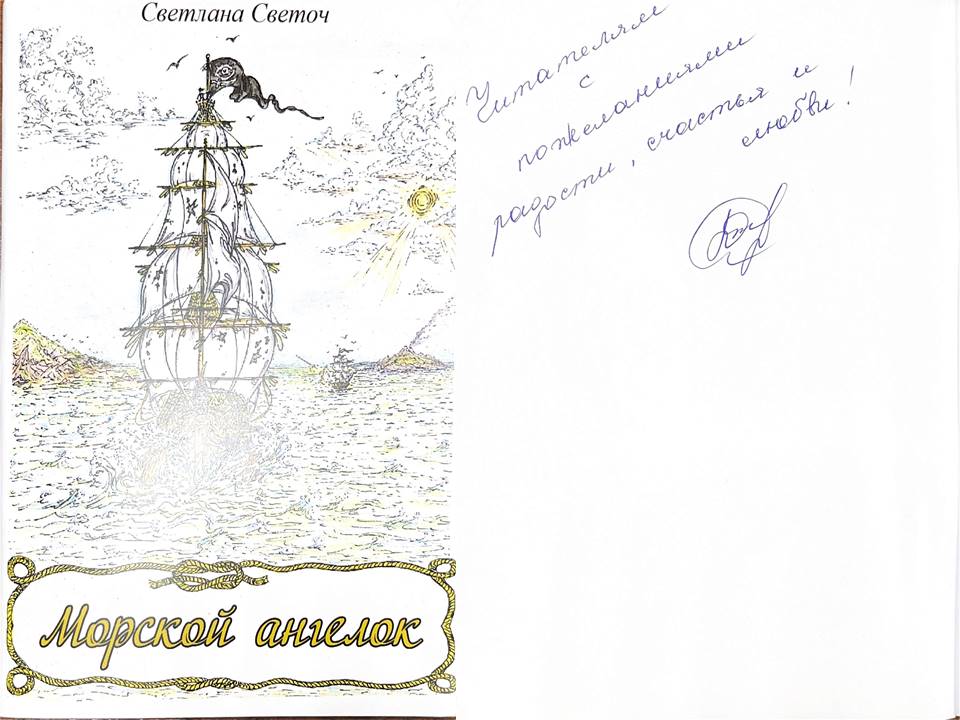 Светлана Светоч
Морской ангелок
Читателям
с
пожеланиями
радости, счастья и
любви!